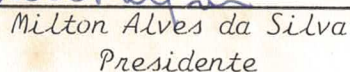 Milton Alves da Silva
Presidente